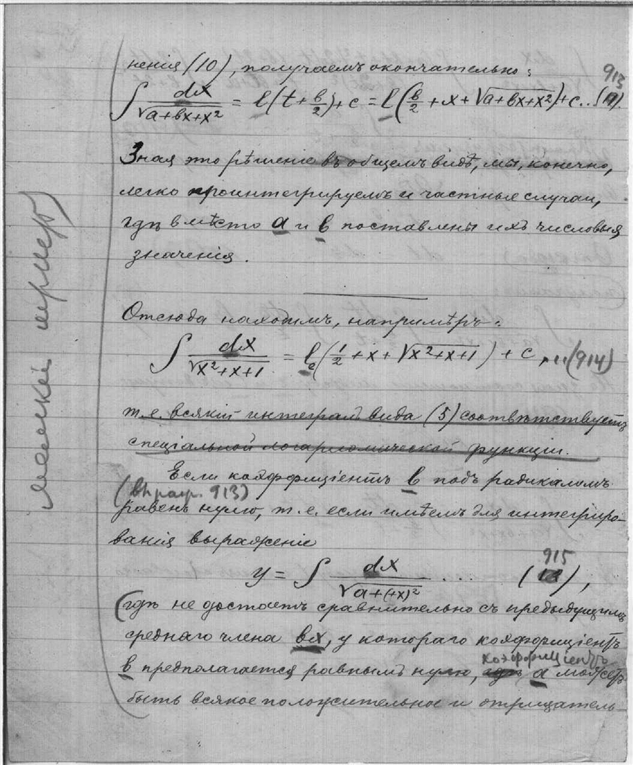 нения (10), получаемъ окончательно:
913
∫ dx / √(a+bx+x²) = l(t + b/2) + c = l(b/2 + x + √(a+bx+x²)) + c...(11)
Зная это рѣшение въ общемъ видѣ, мы, конечно,
легко проинтегрируемъ и частные случаи,
гдѣ вмѣсто a и b поставлены ихъ числовыя
значения.
Отсюда находимъ, напримѣръ:
∫ dx / √(x²+x+1) = l(1/2 + x + √(x²+x+1)) + c ,,, (914)
т.е. всякій интегралъ вида (5) соотвѣтствуетъ
спеціальной логариѳмической функціи.
Если коэффиціентъ b подъ радикаломъ
(въ 913)
равенъ нулю, т.е. если имѣемъ для интегриро-
ванія выраженіе
915
y = ∫ dx / √(a+(+x)²) .... (13),
(гдѣ не достаетъ сравнительно съ предыдущимъ
средняго члена bx, у котораго коэффиціентъ
коэффиціентъ
b предполагается равнымъ нулю, a можетъ
быть всякое положительное и отрицатель-
мелкій